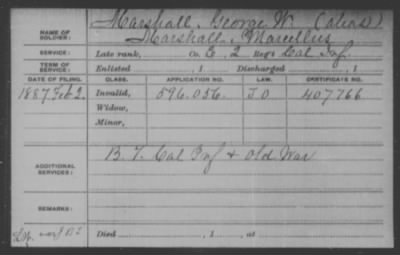 NAME OF SOLDIER: Marshall, George W. (alias)
Marshall, Marcellus
SERVICE: Late rank, Co. E, 2 Reg't Cal Inf
TERM OF SERVICE: Enlisted , 1 Discharged , 1
DATE OF FILING. CLASS. APPLICATION NO. LAW. CERTIFICATE NO.
1887 Feb 2. Invalid, 596.056. J.O 407766
Widow,
Minor,
ADDITIONAL SERVICES: B. 7. Cal Inf & Old War
REMARKS:
Died , 1 , at